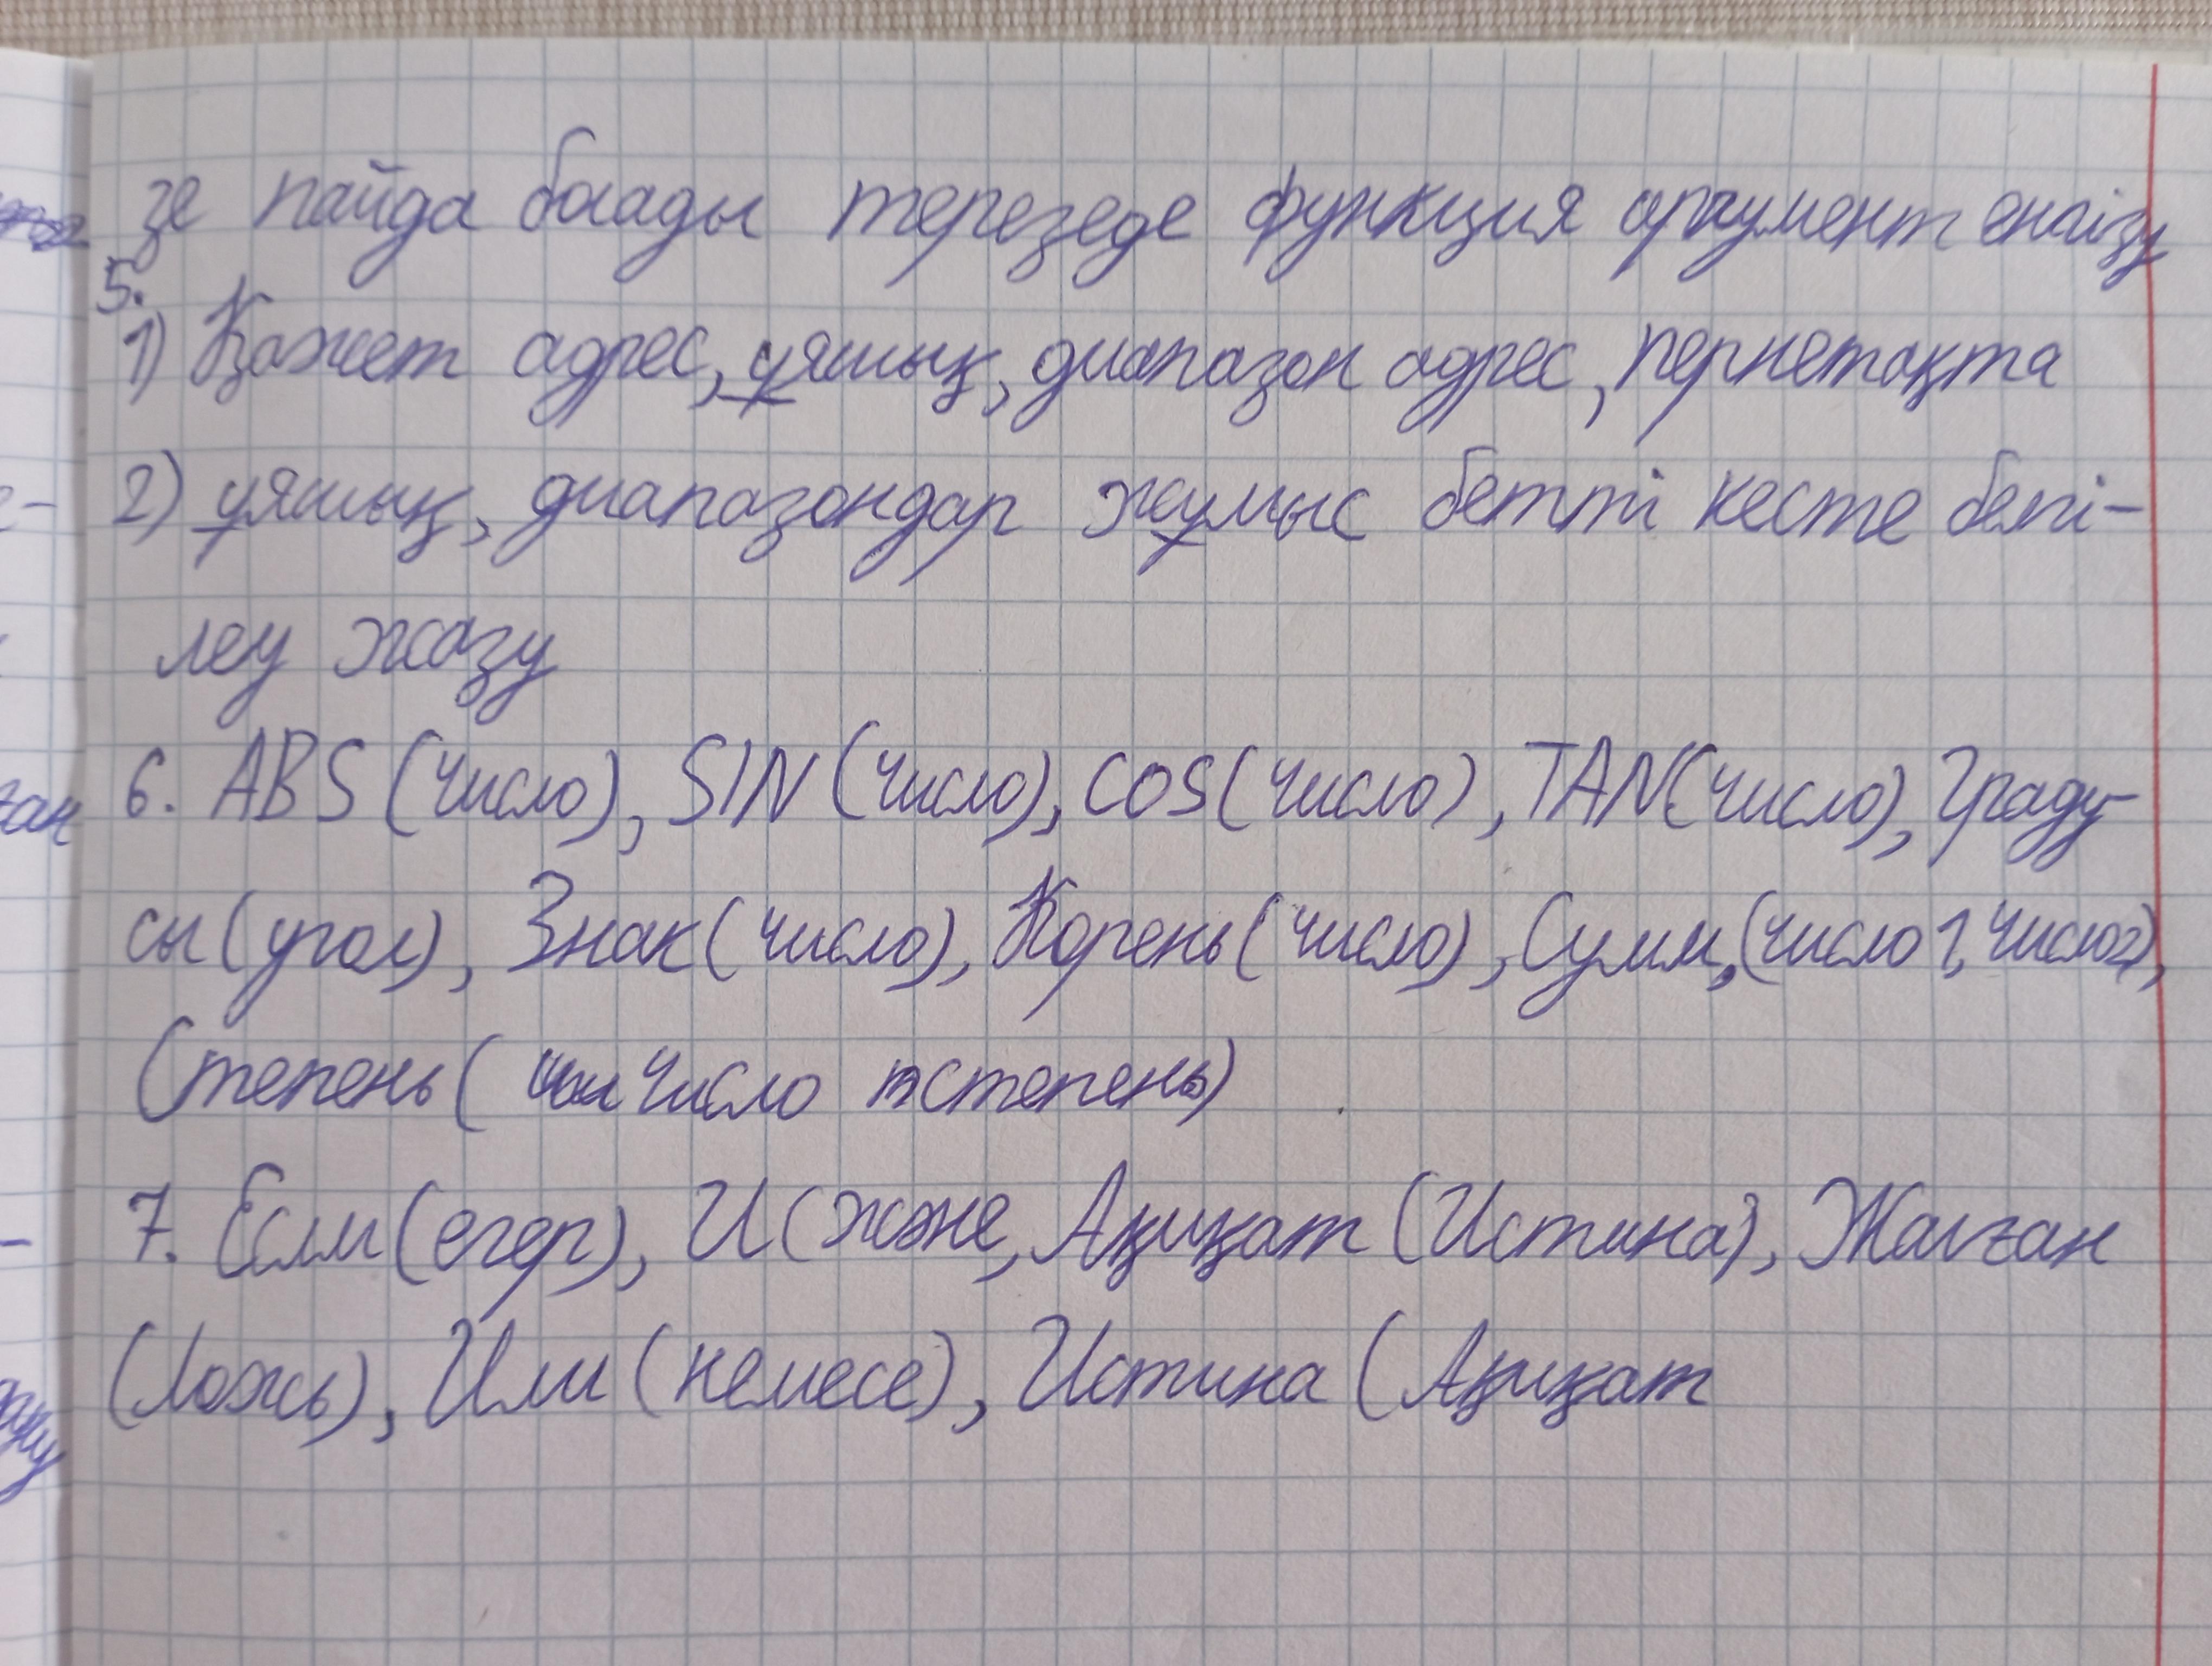 зе пайда болады терезеде функция аргумент енгізу
5.
1) Қажет адрес, ұяшық, диапазон адрес, пернетақта
2) ұяшық, диапазондар жұмыс бетті кесте белгі-
леу жазу
6. ABS (число), SIN (число), COS (число), TAN (число), Граду-
сы (угол), Знак (число), Корень (число), Сумм, (число 1, число2),
Степень ( число степень)
7. Если (егер), И (және, Ақиқат (Истина), Жалған
(Ложь), Или (немесе), Истина (Ақиқат